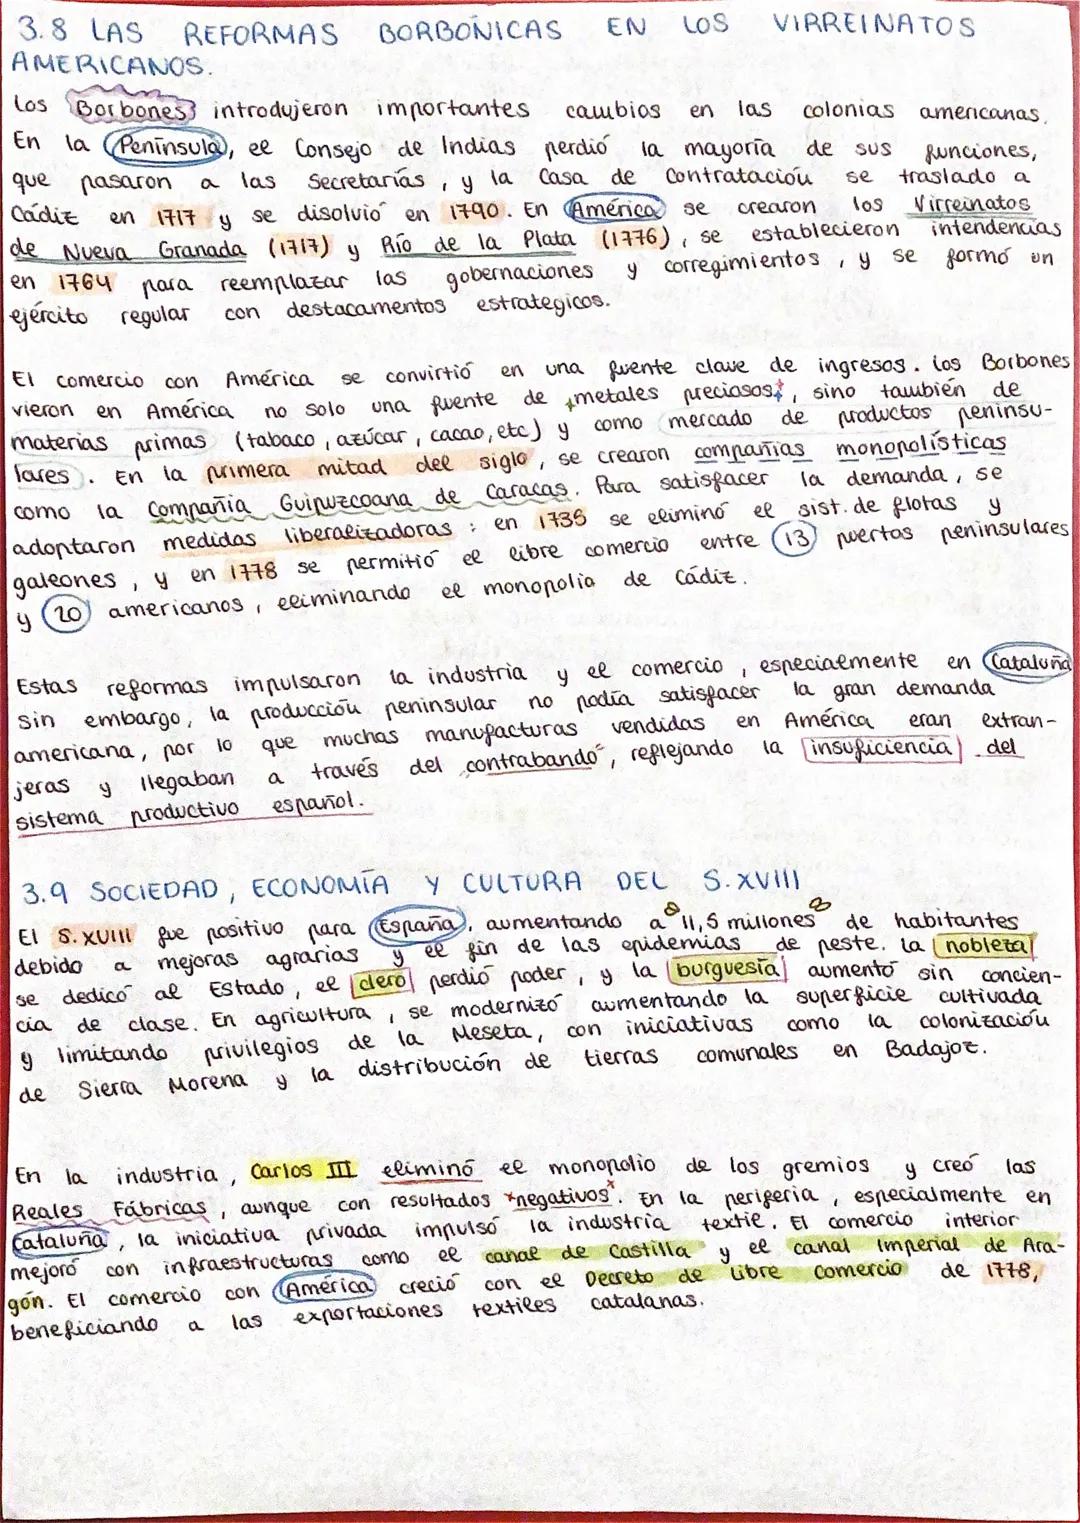 3.8 LAS REFORMAS BORBÓNICAS EN LOS VIRREINATOS
AMERICANOS.
Los Borbones introdujeron importantes cambios en las colonias americanas.
En la Península, el Consejo de Indias perdió la mayoría de sus funciones,
que pasaron a las Secretarías, y la Casa de Contratación se traslado a
Cádiz en 1717 y se disolvió en 1790. En América se crearon los Virreinatos
de Nueva Granada (1717) y Río de la Plata (1776), se establecieron intendencias
en 1764 para reemplazar las gobernaciones y corregimientos, y se formó un
ejército regular con destacamentos estrategicos.
El comercio con América se convirtió en una fuente clave de ingresos. Los Borbones
vieron en América no solo una fuente de metales preciosos, sino también de
materias primas (tabaco, azúcar, cacao, etc) y como mercado de productos peninsu-
lares. En la primera mitad del siglo, se crearon compañías monopolísticas
como la Compañía Guipuzcoana de Caracas. Para satisfacer la demanda, se
adoptaron medidas liberalizadoras: en 1735 se eliminó el sist. de flotas y
galeones, y en 1778 se permitió el libre comercio entre 13 puertos peninsulares
y 20 americanos, eliminando el monopolio de Cádiz.
Estas reformas impulsaron la industria y el comercio, especialmente en Cataluña
Sin embargo, la producción peninsular no podía satisfacer la gran demanda
americana, por lo que muchas manufacturas vendidas en América eran extran-
jeras y llegaban a través del "contrabando", reflejando la insuficiencia del
sistema productivo español.
3.9 SOCIEDAD, ECONOMÍA Y CULTURA DEL S.XVIII
El S.XVIII fue positivo para España, aumentando a 11,5 millones de habitantes
debido a mejoras agrarias y el fin de las epidemias de peste. La nobleza
se dedicó al Estado, el clero perdió poder, y la burguesía aumentó sin concien-
cia de clase. En agricultura, se modernizó aumentando la superficie cultivada
y limitando privilegios de la Meseta, con iniciativas como la colonización
de Sierra Morena y la distribución de tierras comunales en Badajoz.
En la industria, Carlos III eliminó el monopolio de los gremios y creó las
Reales Fábricas, aunque con resultados *negativos*. En la periferia, especialmente en
Cataluña, la iniciativa privada impulsó la industria textil. El comercio interior
mejoró con infraestructuras como el canal de Castilla y el canal Imperial de Ara-
gón. El comercio con América creció con el Decreto de Libre Comercio de 1778,
beneficiando a las exportaciones textiles catalanas.